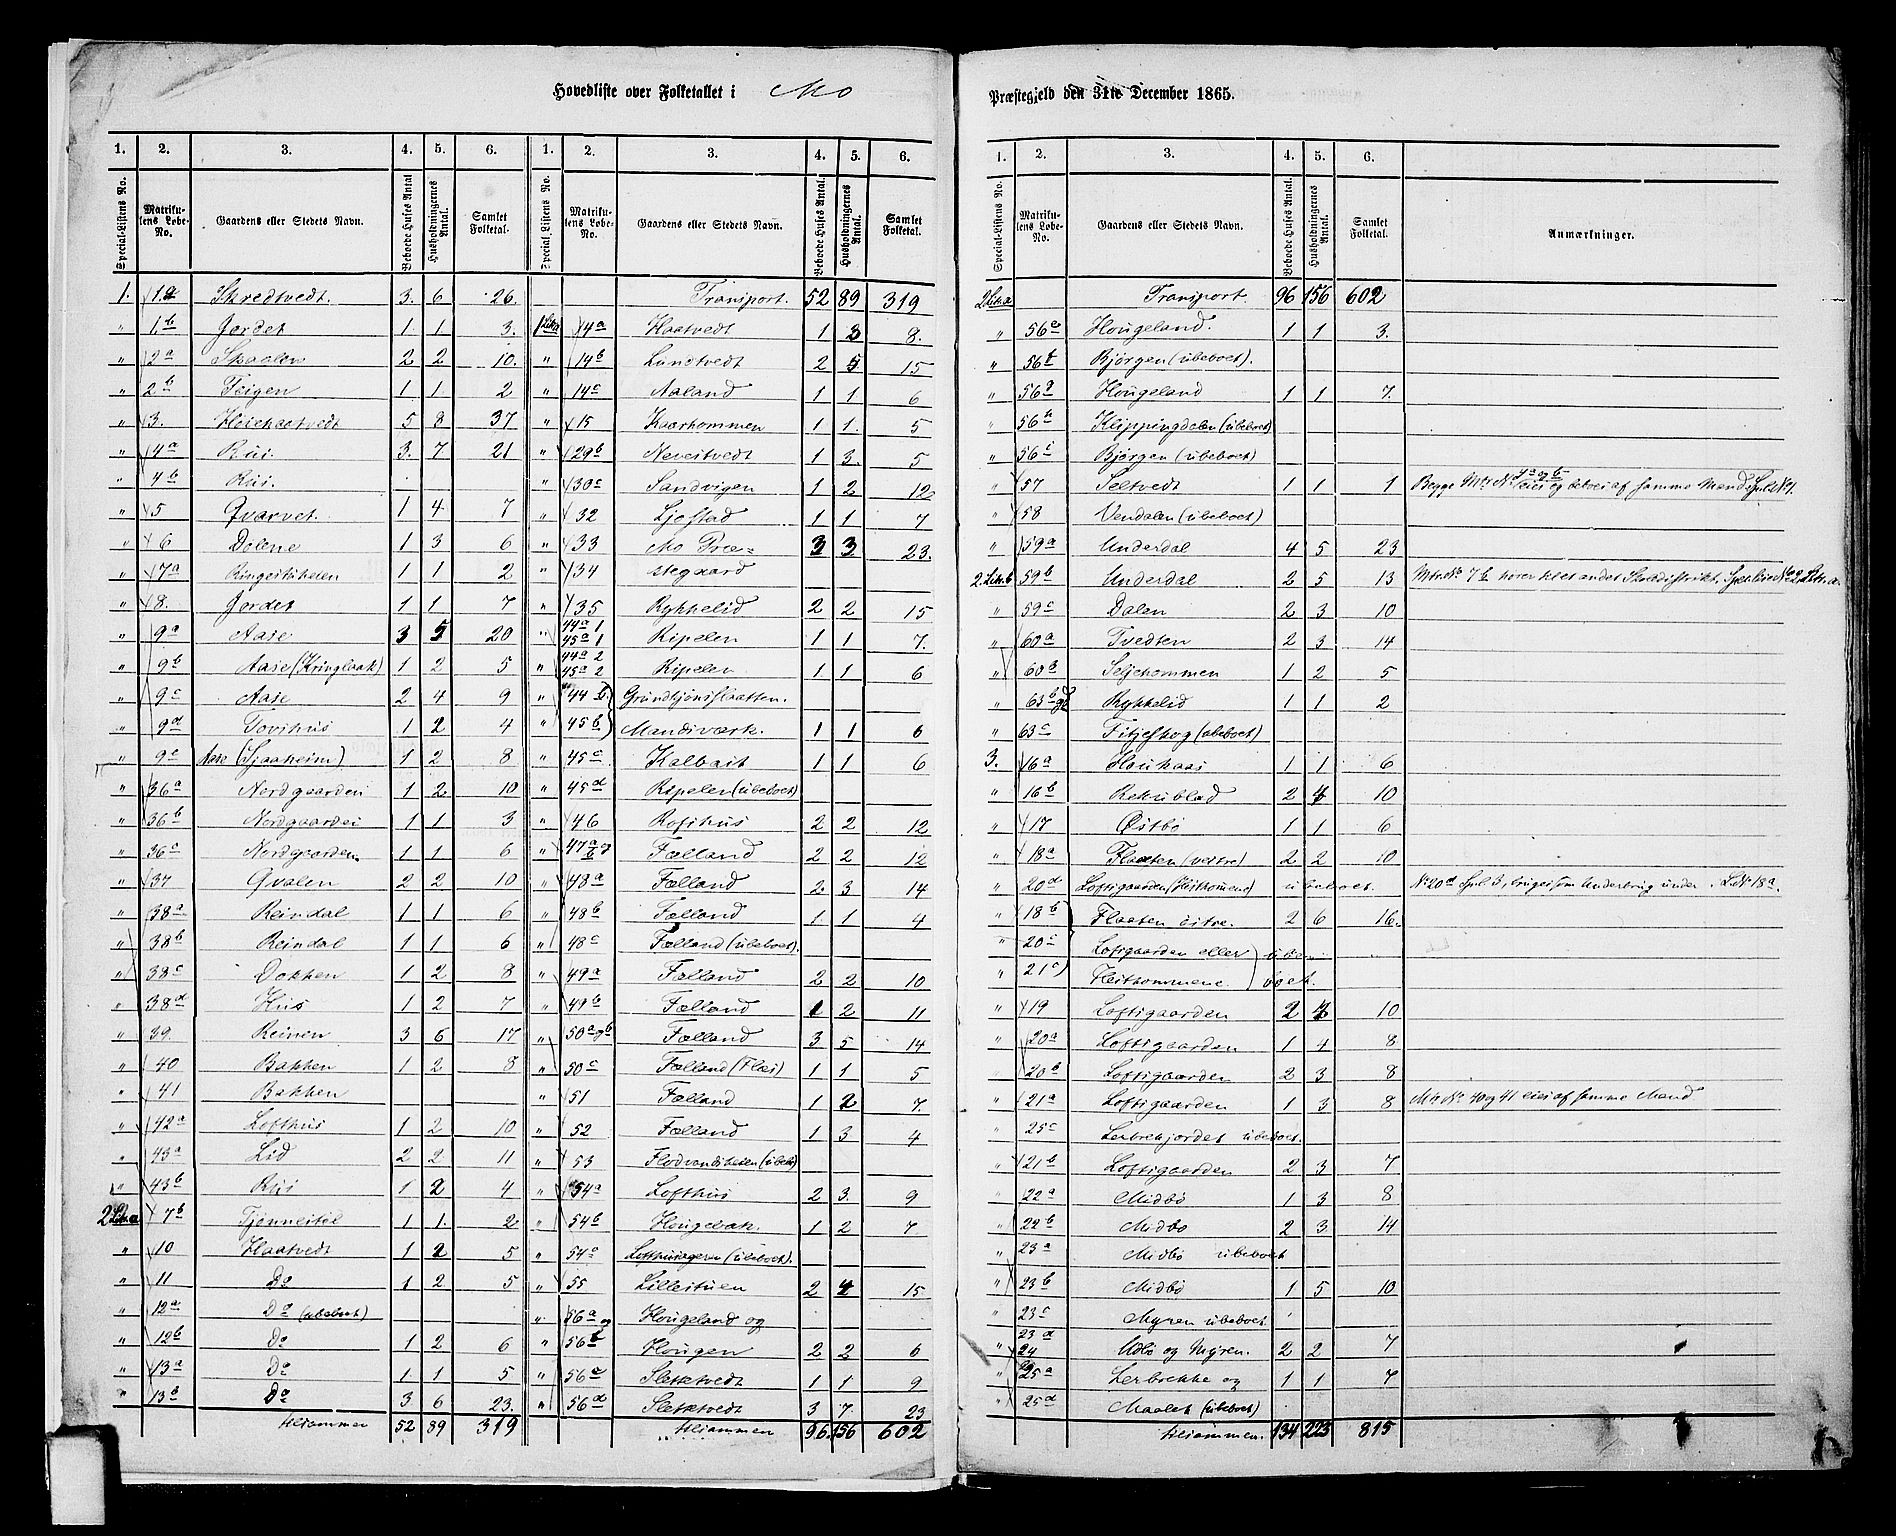 Hovedliste over Folketallet i Mo Præstegjeld den 31te December 1865.
1. 2. 3. 4. 5. 6. 1. 2. 3. 4. 5. 6.
Special-Listens No. Matrikulens Løbe-No. Gaardens eller Stedets Navn. Beboede Huses Antal Husholdningernes Antal. Samlet Folketal.
1. 1a Skredtvedt. 3. 6 26.
" 1b Jordet 1 1 3.
" 2a Skaalen 2 2 10.
" 2b Teigen 1 1 2
" 3. Hoiskaatvedt 5 8 37
" 4a Rui 3. 7 21
" 4b Rui.
" 5 Qvarvet. 1 4 7
" 6 Dalene 1 3 6
" 7a 1 1 2
" 8. Jordet 1 1 7
" 9a Aase 3 5 20
" 9b Aase (Kringlaak) 1 2 5
" 9c Aase 2 4 9
" 9d Tovihus 1 2 4
" 9e Aase (Sjaaheim) 1 2 8
" 36a Nordgaarden 1 2 10
" 36b Nordgaarden 1 1 3
" 36c Nordgaarden 1 1 6
" 37 Qvalen 2 2 10
" 38a Reindal 1 1 6
" 38b Reindal 1 1 6
" 38c Dokken 1 2 8
" 38d Hus 1 2 7
" 39. Reinen 3 6 17
" 40 Bakken 1 2 8
" 41 Bakken
" 42a Lofthus 1 2 10
" 43a Lid 2 2 11
" 43b Rui 1 2 4
2 Litr.a 7b Tjønnestøl 1 1. 2
" 10 Haatvedt 1 2 5
" 11 Do 1 2 5
" 12a Do (ubeboet)
" 12b Do 1 2 6
" 13a Do 1 1 5
" 13b Do 3 6 23.
tilsammen 52 89 319
Special-Listens No. Matrikulens Løbe-No. Gaardens eller Stedets Navn. Beboede Huses Antal. Husholdningernes Antal. Samlet Folketal.
Transport. 52 89 319
14a Haatvedt 1 3 8.
" 14b Lundtvedt 2 5 15
" 14c Aaland 1 1 6
" 15 Kaarhommen 1 1. 5
" 29b Nevestvedt 1 3. 5
" 30c Sandvigen 1 2 12
" 32 Ljosstad 1 1 7
" 33 Mo Præ= 3 3 23.
" 34 stegaard
" 35 Rykkelid 2 2 15
" 44a 1 45a 1 Ripelen 1 1 7.
" 44a 2 45a 2 Ripelen 1 1 6
" 44 b.
" 45b Mandsværk. 1 1 6
" 45c Kalbait 1 1 6
" 45d Ripelen (ubeboet)
" 46 Rofshus 2 2 12
" 47a og b Fælland 2 2 12
" 48a Fælland 2 3 14
" 48b Fælland 1 1 4
" 48c Fælland (ubeboet).
" 49a Fælland 2 2 10
" 49b Fælland 1 2 11
" 50a og b Fælland 3 5 14
" 50c Fælland (Flæs) 1 1 5
" 51 Fælland 1 2 7.
" 52 Fælland 1 3 4
" 53
" 54a Lofthus 2 3. 9
" 54b Hougebak. 1 2 7.
" 54c Lofthusageren (ubeboet).
" 55 Lillestuen 2 4 15
" 56a og Hougeland og
" 56b Hougen 2 2 6
" 56c Sletkvedt 1 1 9
" 56d Sletkvedt 3 7. 23
tilsammen 96. 156 602
1. 2. 3. 4. 5. 6.
Special-Listens No. Matrikulens Løbe-No. Gaardens eller Stedets Navn. Beboede Huses Antal. Husholdningernes Antal. Samlet Folketal. Anmærkninger.
2 Litr.a Transport. 96 156 602
" 56e Hougeland. 1 1 3.
" 56f Bjørgen (ubeboet).
" 56g Hougeland 1 1 7.
" 56h Klippingdalen (ubeboet)
" 56i Bjørgen (ubeboet)
" 57 Seltvedt 1 1 1 Begge Mtr. No 4a og b eies og beboes af samme Mand
" 58 Vendalen (ubeboet)
" 59a Underdal 4 5 23
2. Litr.b 59b Underdal 2 5 13 Mtr. No 7b hører til et andet Skoledistrikt.
" 59c Dalen 2 3 10
" 60a Tvedten 2 3 14
" 60b Seljehommen 1 2 5
" 63b og d Rykkelid 1 1 2
" 63c Fitjeskog (ubeboet)
3. 16a Haukaas 1 1 6
" 16b 2 4 10
" 17 Østbø 1 1 6
" 18a Flaaten (vestre) 2 2 10
" 20d Loftsgaarden (Hesthommene) ubeboet. No 20d Spl. 3, bruges som Underbrug under L.No 18a.
" 18b Flaaten østre. 2 6 16.
" 20c Loftsgaarden eller ube-
" 21c Hesthommene boet.
" 19 Loftsgaarden 2 4 10
" 20a Loftsgaarden 1 4 8
" 20b Loftsgaarden 2 3 8
" 21a Loftsgaarden 1 3 8 Mtr. No 40 og 41 eies af samme Mand
" 25c Lerbrekjordet ubeboet.
" 21b Loftsgaarden 2 3 7
" 22a Midbø 1 3 8
" 22b Midbø 2 3 14
" 23a Midbø ubeboet
" 23b Midbø 1 5 10
" 23c Myren ubeboet
" 23d 24 Udbø og Myren. 2 2 7
" 25a Lerbrekke og 1 1 7
" 25d Maalet (ubeboet)
tilsammen. 134 223 815